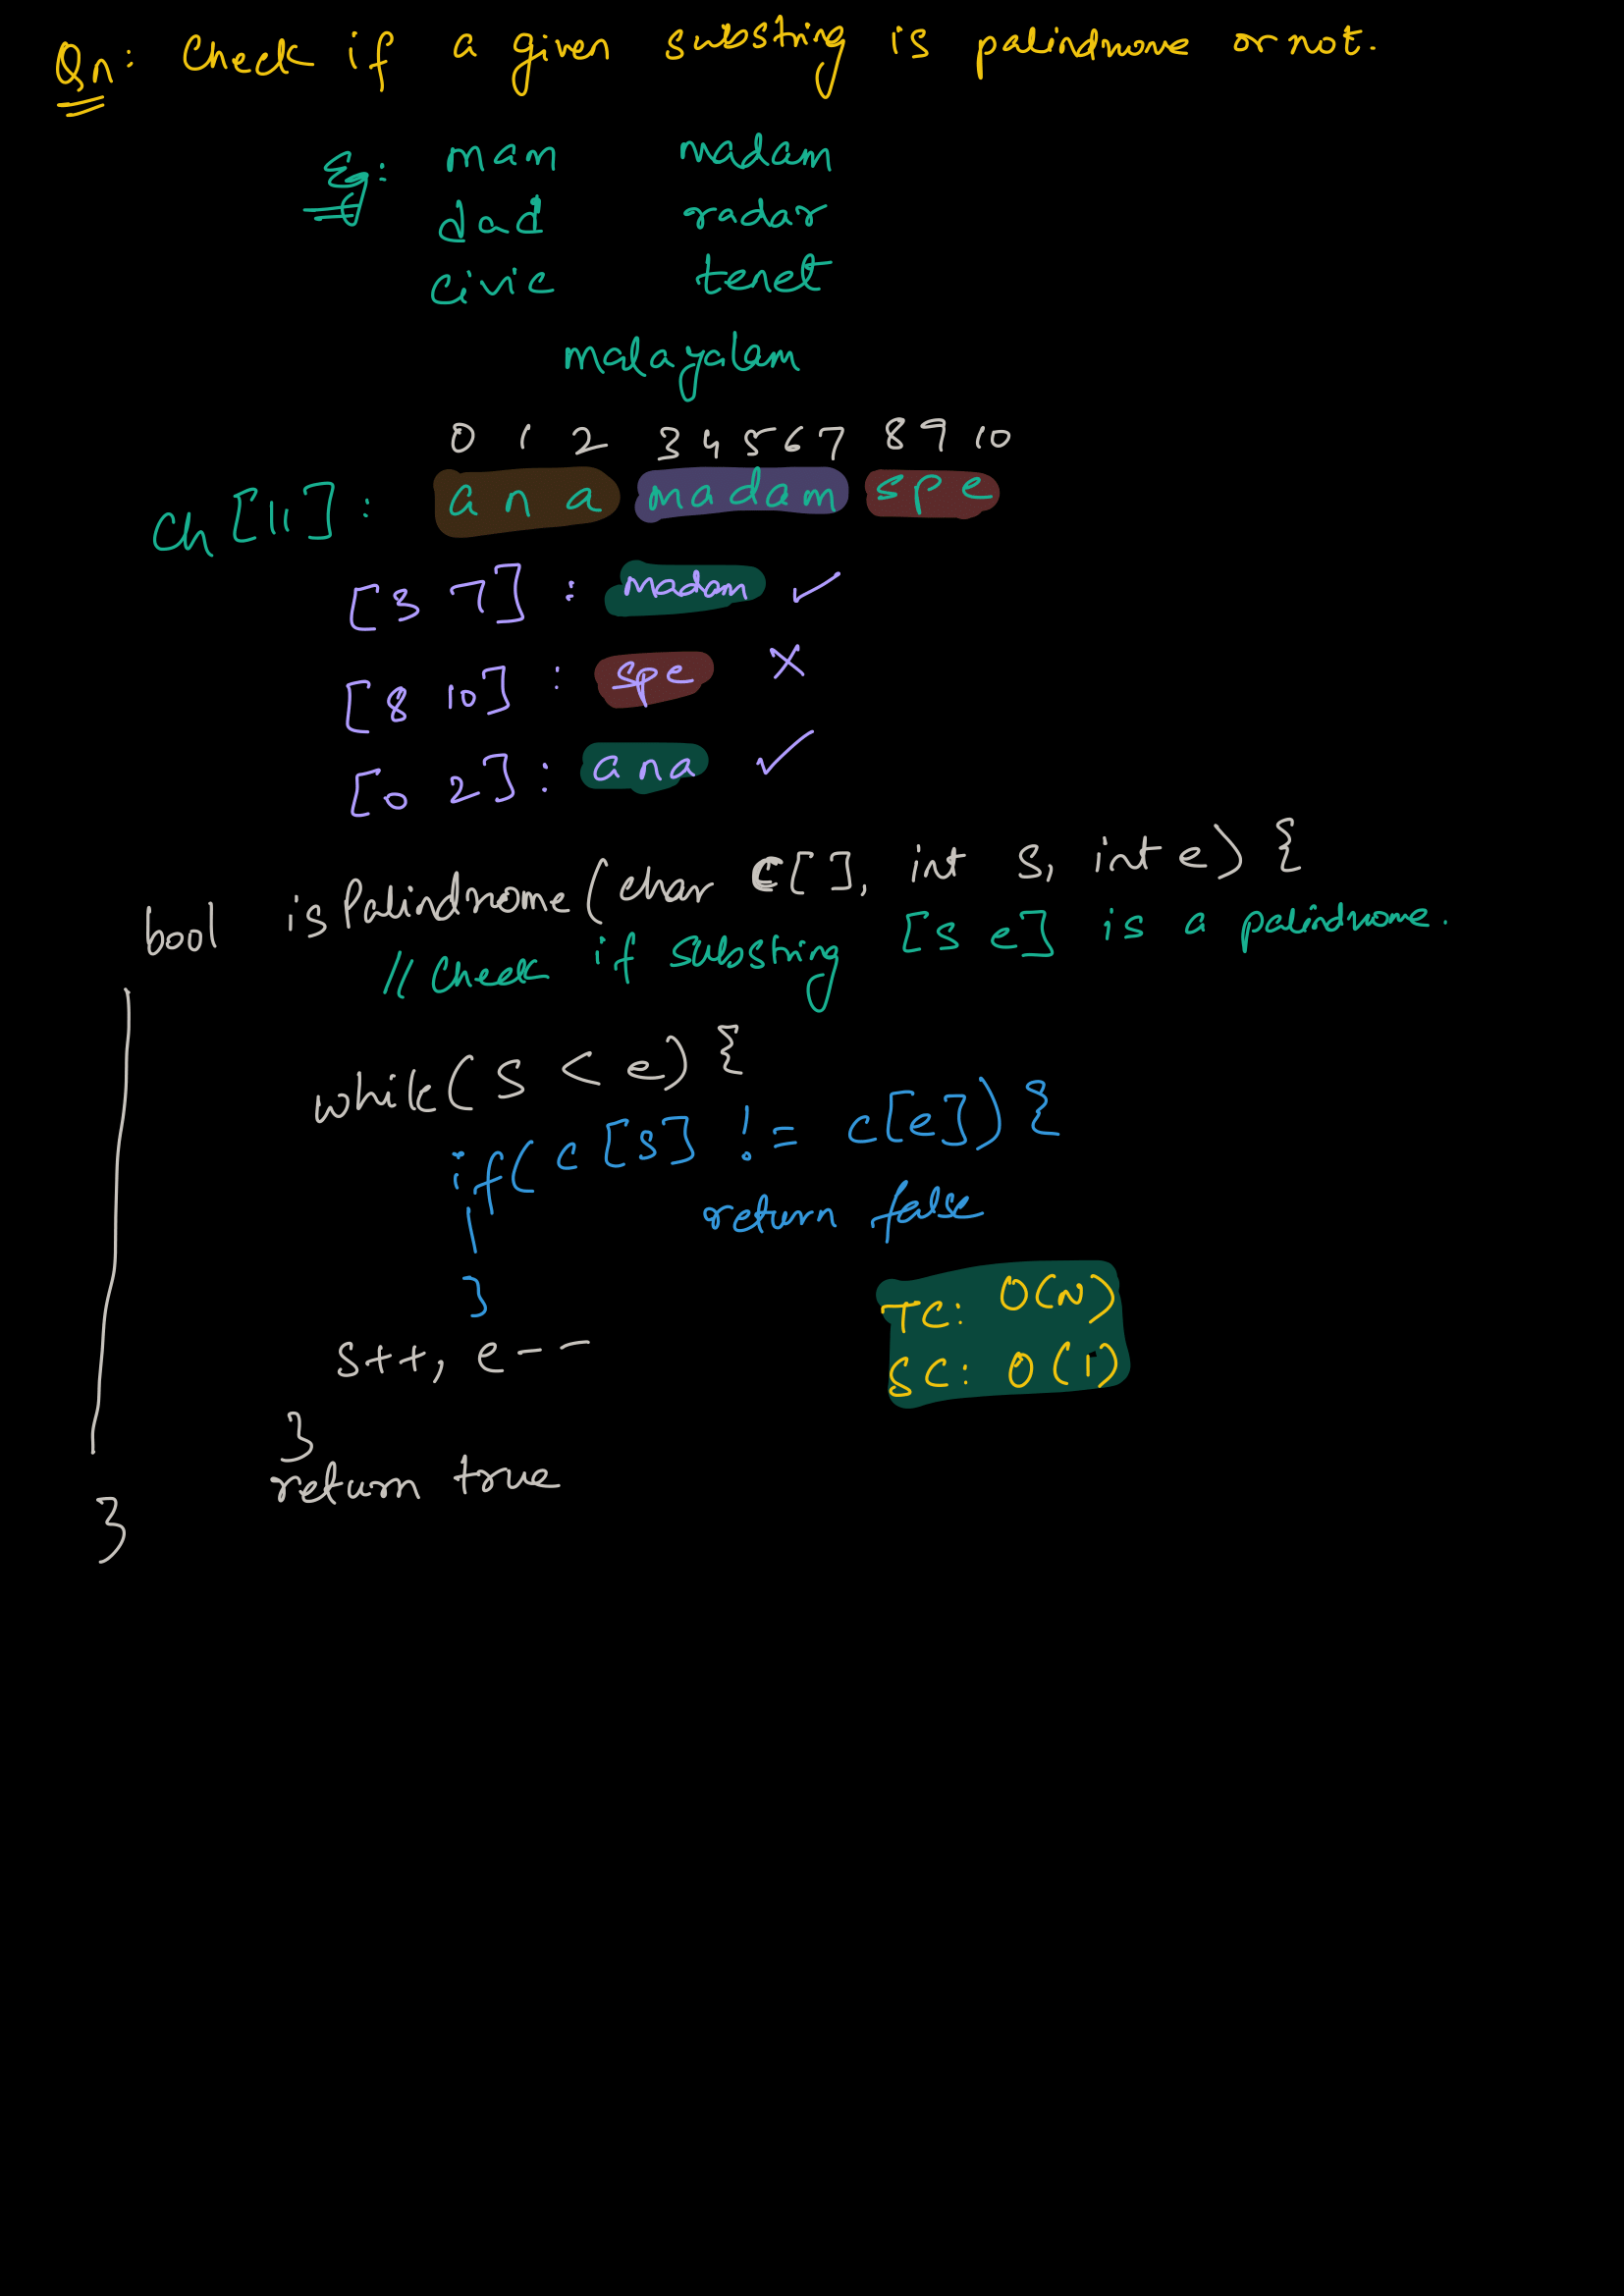 Qn: Check if a given substring is palindrome or not.
Eg: mam madam
dad radar
civic tenet
malayalam
0 1 2 3 4 5 6 7 8 9 10
Ch [11] : a n a m a d a m s p e
[3 7] : madam ✓
[8 10] : spe ✗
[0 2] : ana ✓
bool isPalindrome(char C[], int s, int e) {
// Check if substring [s e] is a palindrome.
while(s < e) {
if(c[s] != c[e]) {
return false
}
TC: O(N)
s++, e--
SC: O(1)
}
return true
}